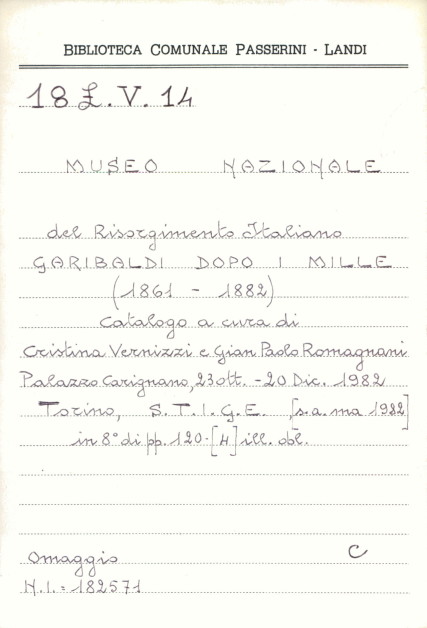 BIBLIOTECA COMUNALE PASSERINI - LANDI
18 £.V.14
MUSEO NAZIONALE
del Risorgimento Italiano
GARIBALDI DOPO I MILLE
(1861 - 1882)
Catalogo a cura di
Cristina Vernizzi e Gian Paolo Romagnani
Palazzo Carignano, 23 ott. - 20 Dic. 1982
Torino, S.T.I.G.E. [s.a. ma 1982]
in 8° di pp. 120-[4] ill. obl.
Omaggio C
N.I. = 182571